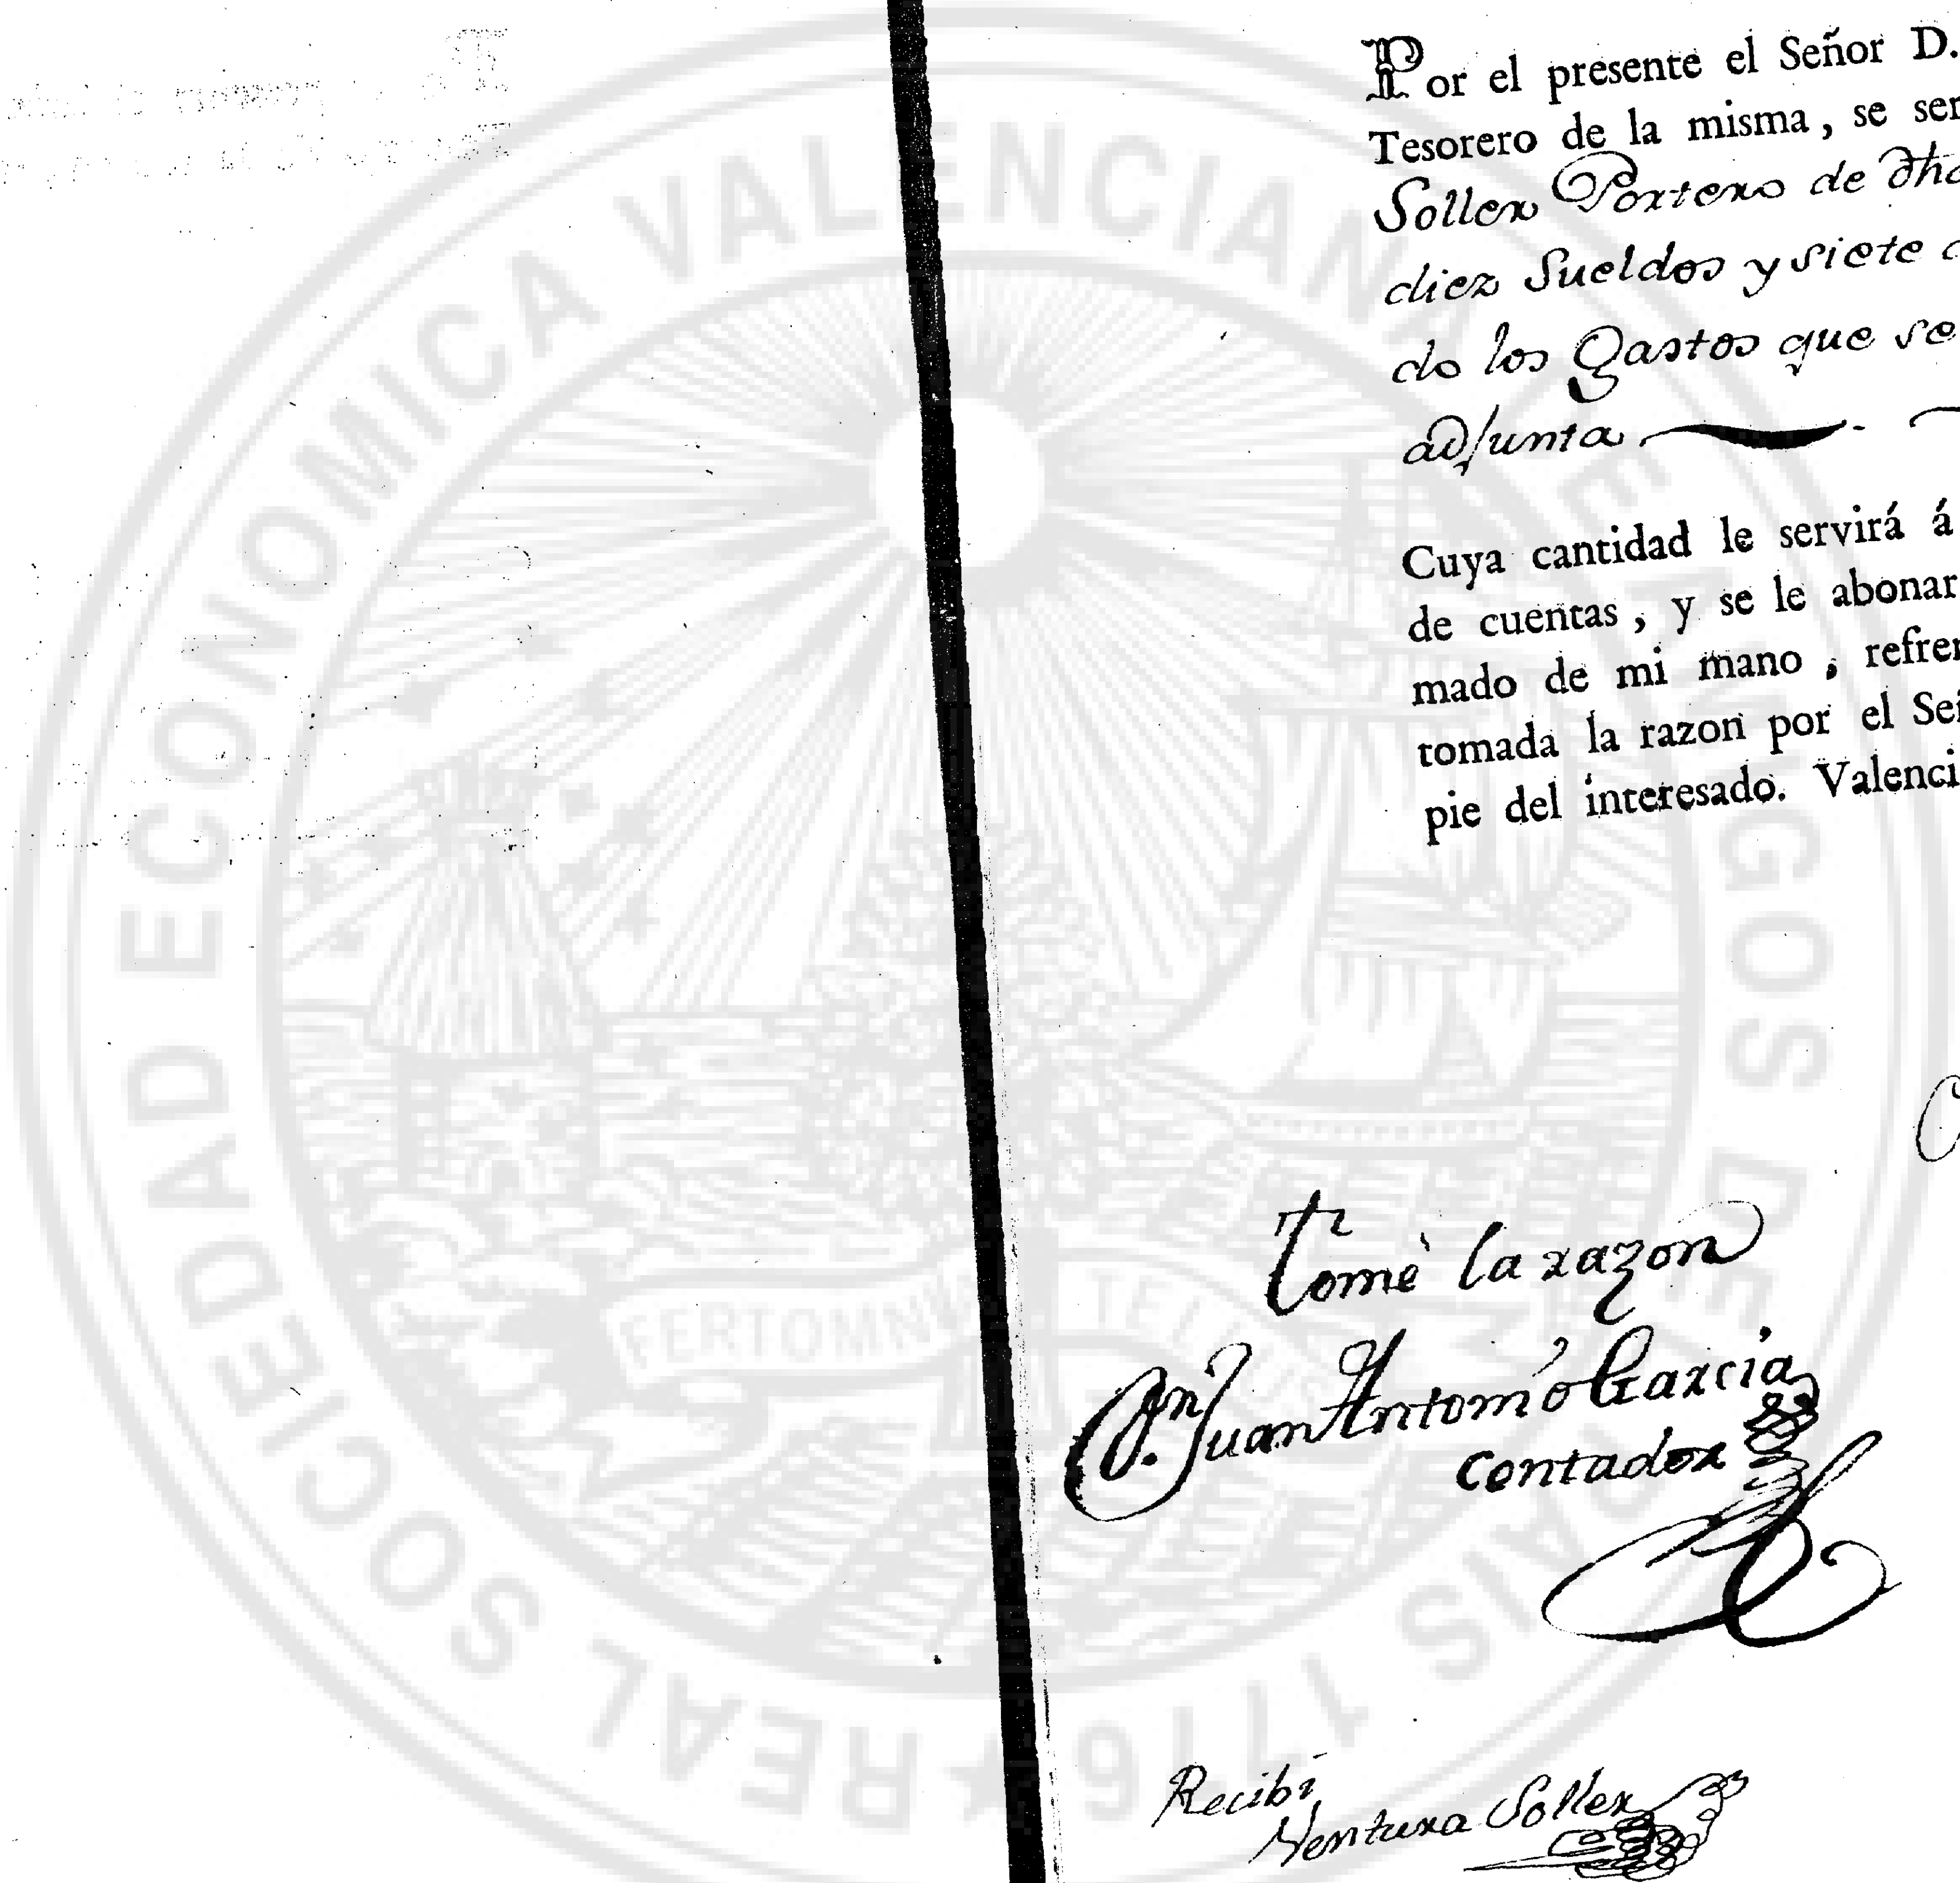 Por el presente el Señor D.
Tesorero de la misma, se ser
Soller Portero de dha
diez Sueldos y siete
do los Gastos que se
adjunta
Cuya cantidad le servirá á
de cuentas, y se le abonar
mado de mi mano, refren
tomada la razon por el Señ
pie del interesado. Valenci
tomè la razon
Dn. Juan Antonio Garcia
Contador
Recibí
Ventura Soller
REAL SOCIEDAD ECONOMICA VALENCIANA DE AMIGOS DEL PAIS 1776